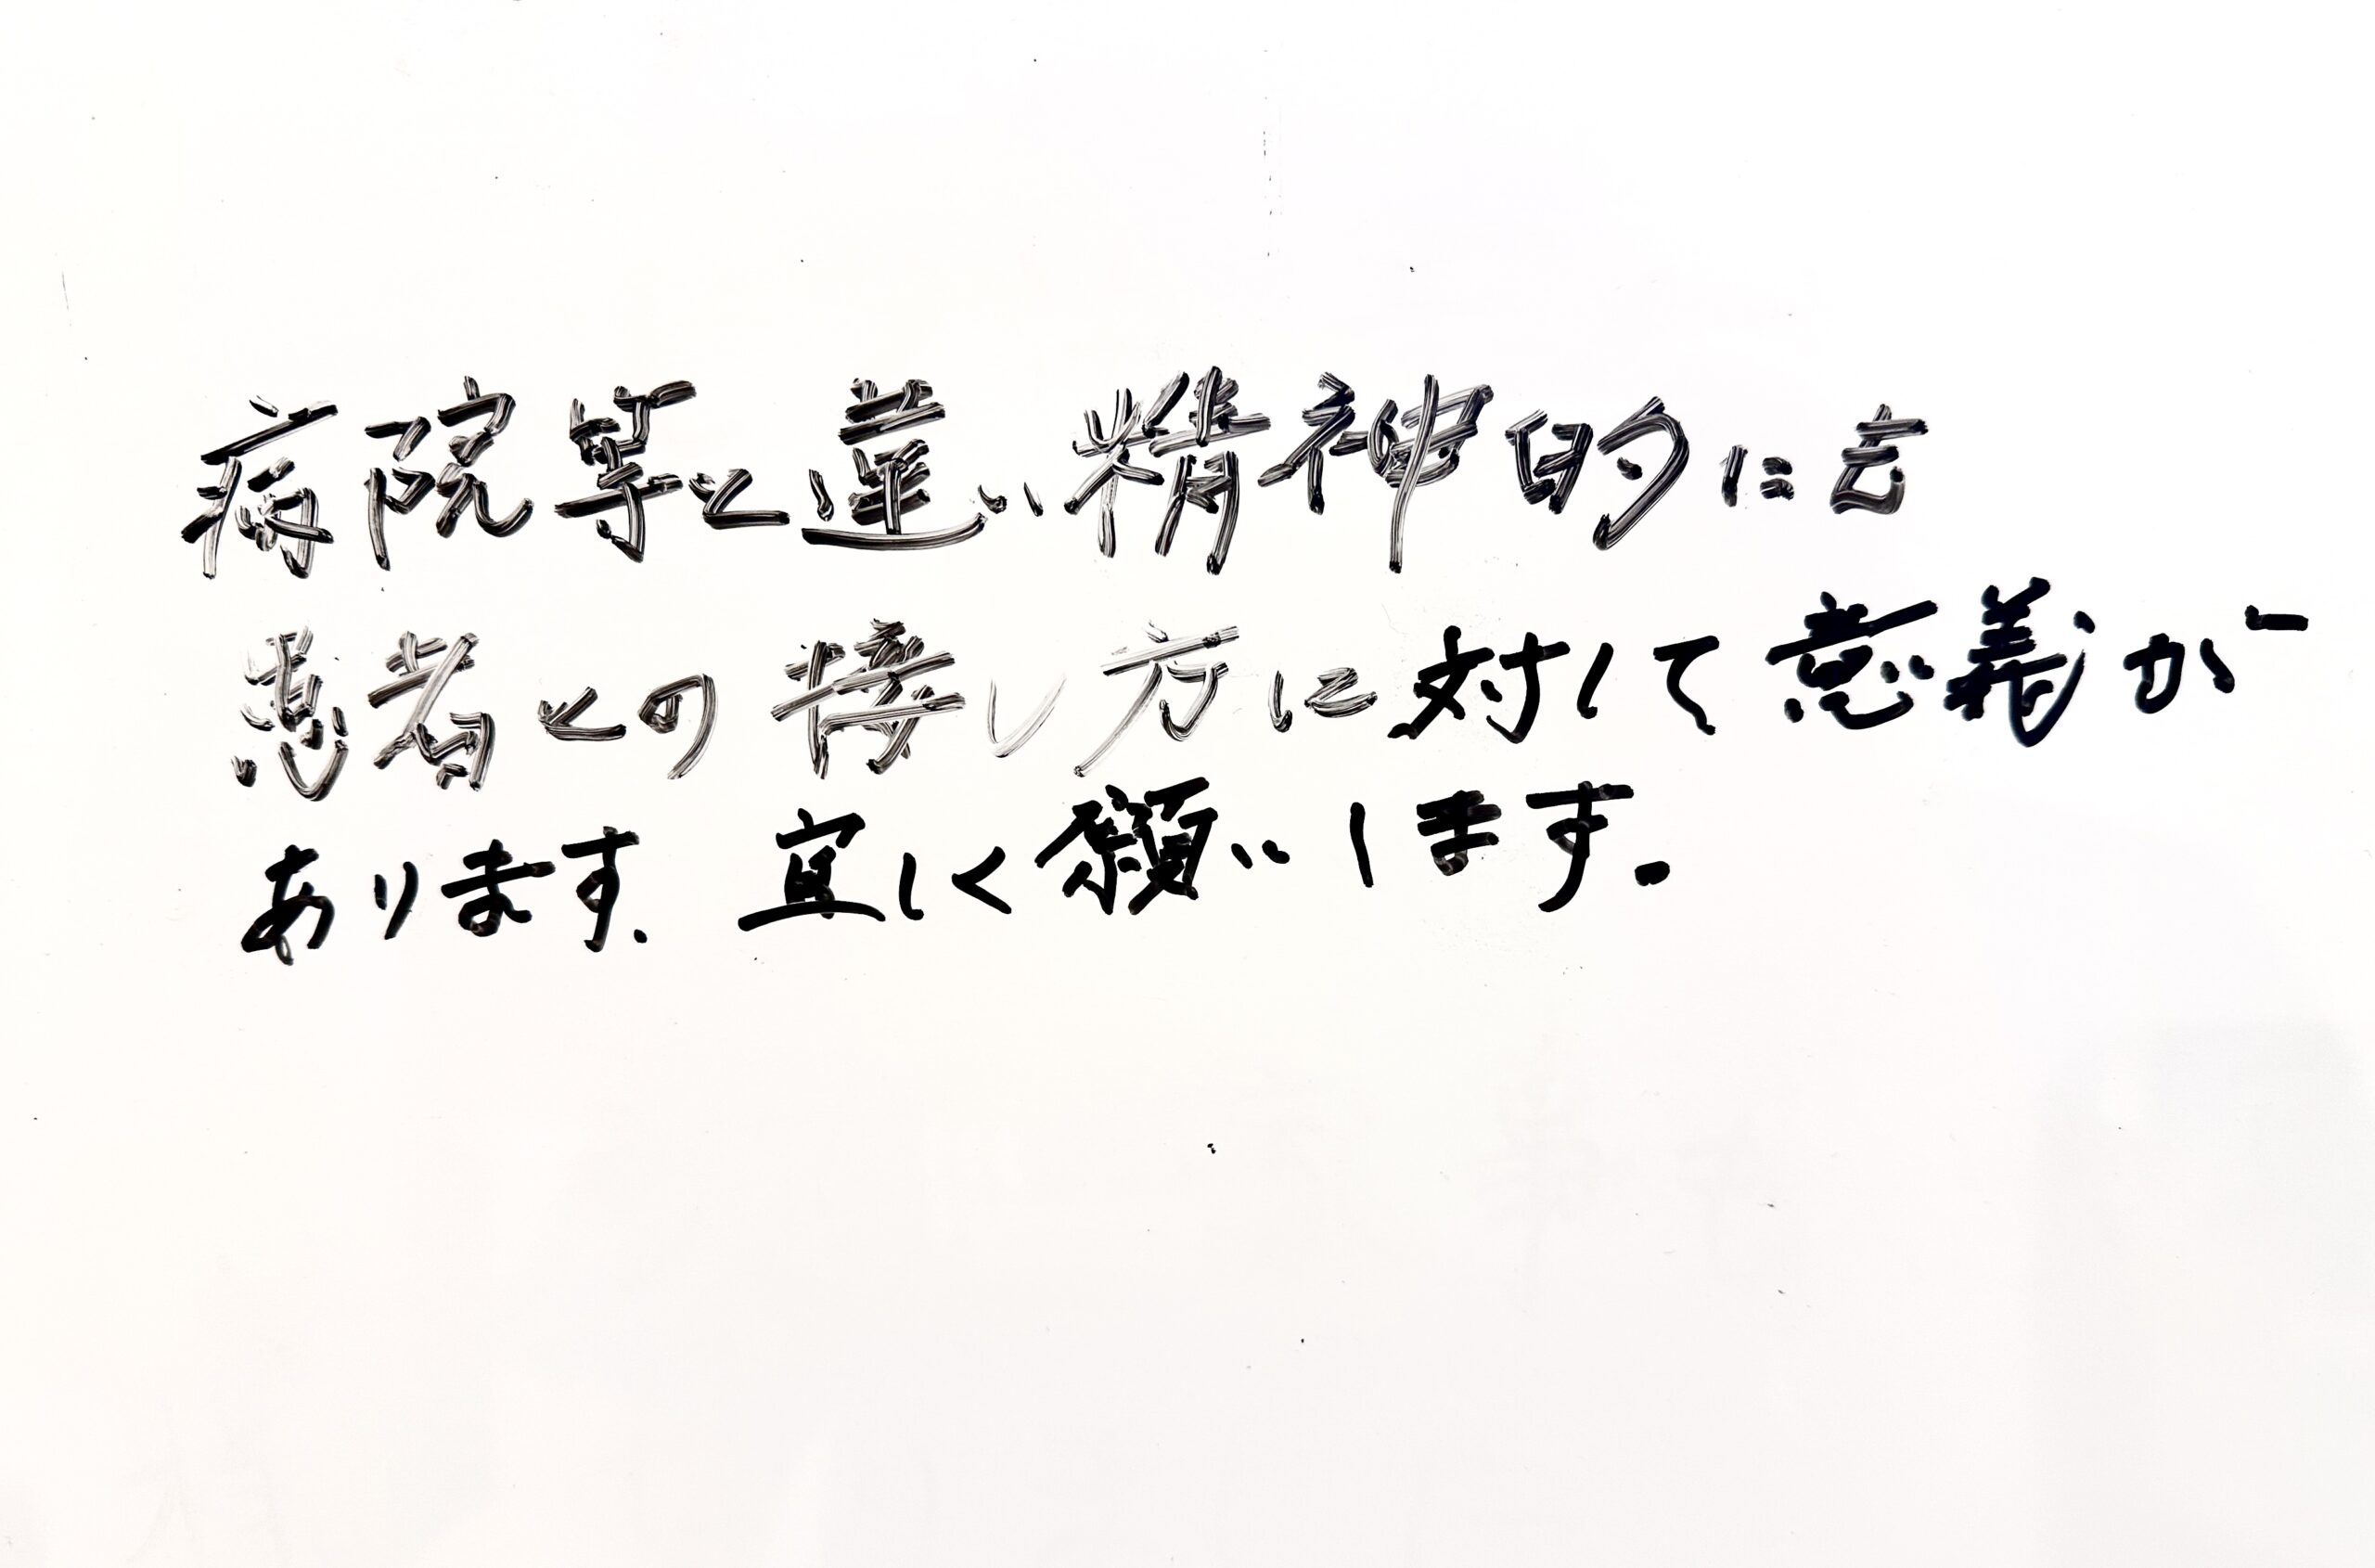 病院等と違い精神的にも
患者との接し方に対して意義が
あります.宜しく願いします.